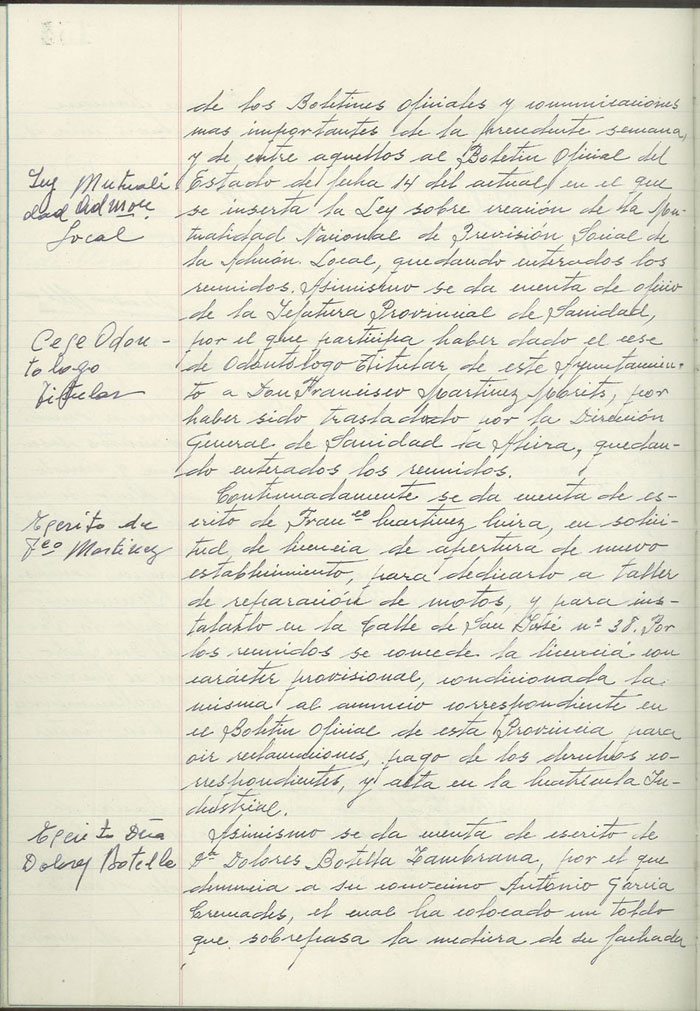 de los Boletines Oficiales y comunicaciones
mas importantes de la precedente semana,
y de entre aquellos al Boletin Oficial del
Ley Mutuali
dad Admon.
Local
Estado de fecha 14 del actual, en el que
se inserta la Ley sobre creación de la Mu-
tualidad Nacional de Previsión Social de
la Admon. Local, quedando enterados los
reunidos. Asimismo se da cuenta de oficio
de la Jefatura Provincial de Sanidad,
Cese Odon-
tologo
Titular
por el que participa haber dado el cese
de Odontólogo Titular de este Ayuntamien-
to a Don Francisco Martinez, por
haber sido trasladado por la Dirección
General de Sanidad a, quedan-
do enterados los reunidos.
Continuadamente se da cuenta de es-
Escrito de
Fco Martinez
crito de Franco Martinez, en solici-
tud de licencia de apertura de nuevo
establecimiento, para dedicarlo a taller
de reparación de motos, y para ins-
talarlo en la Calle de San José nº 38. Por
los reunidos se concede la licencia con
carácter provisional, condicionada la
misma al anuncio correspondiente en
el Boletin Oficial de esta Provincia para
oir reclamaciones, pago de los derechos co-
rrespondientes, y alta en la Matricula In-
dustrial.
Escrito Dña
Dolores Botella
Asimismo se da cuenta de escrito de
Dª Dolores Botella Zambrana, por el que
denuncia a su convecino Antonio Garcia
Cremades, el cual ha colocado un toldo
que sobrepasa la mediera de su fachada